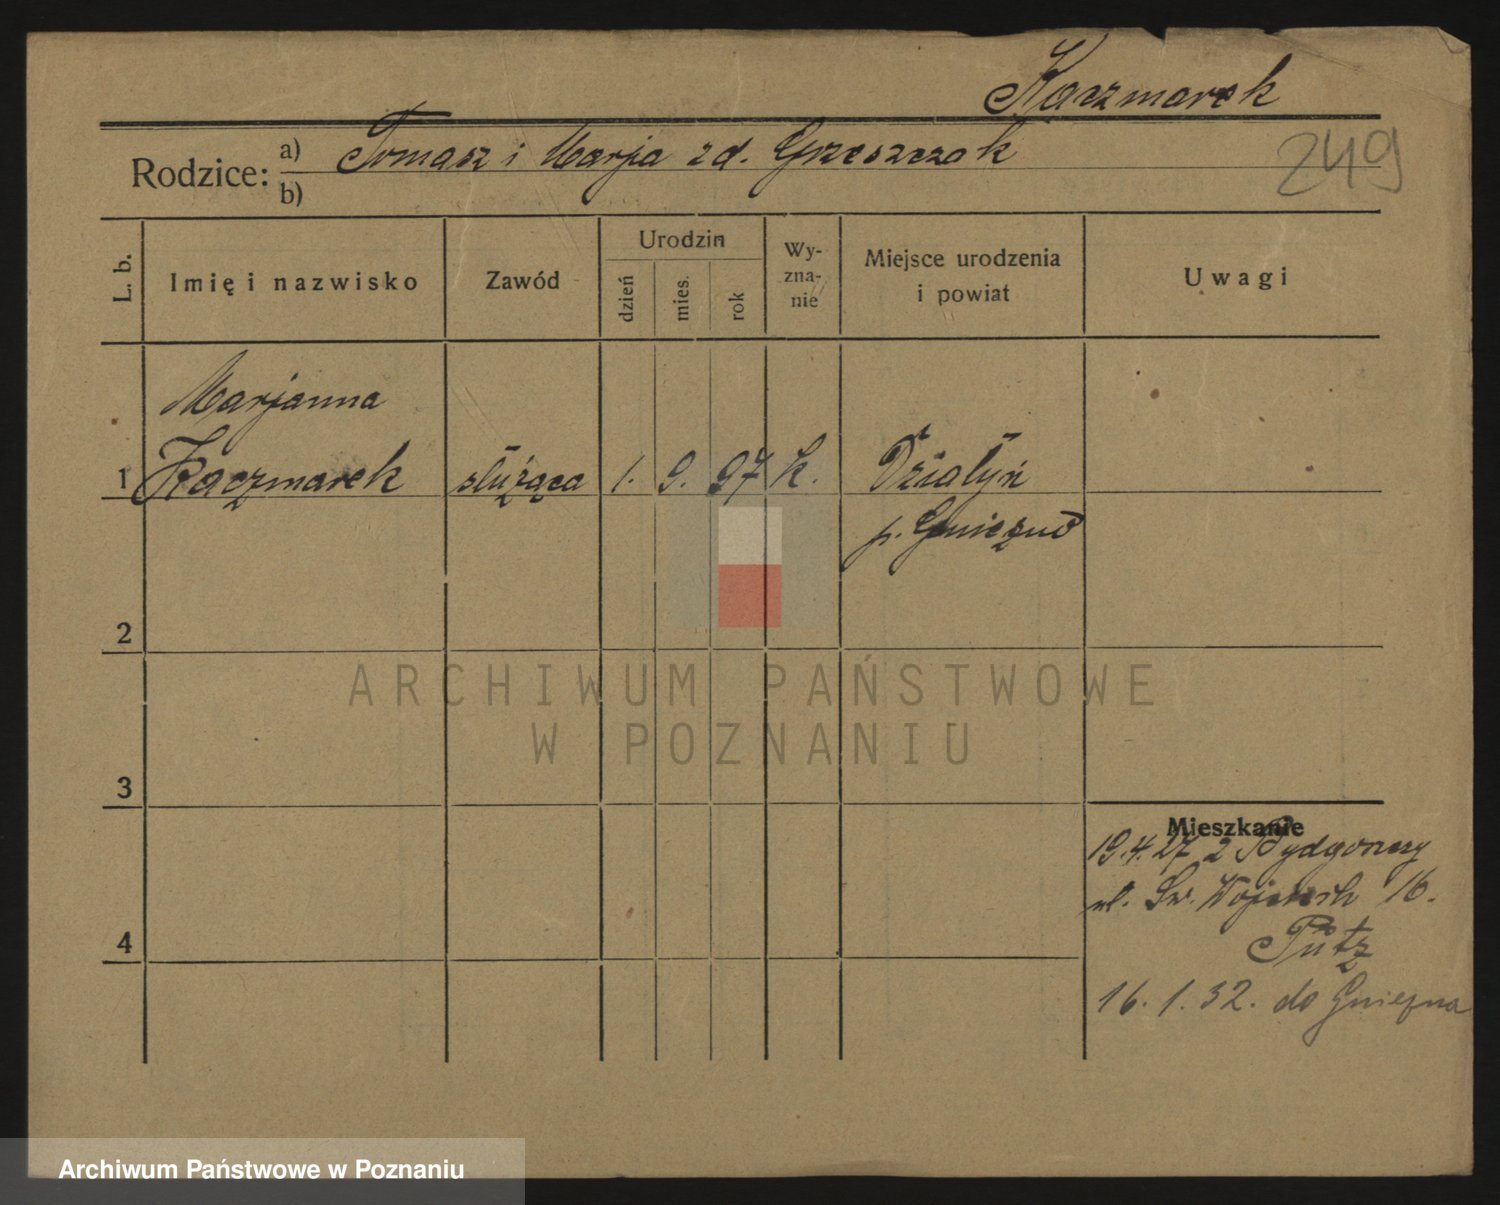 Kaczmarek
Rodzice: a) Tomasz i Marja zd. Grzeszczak
b)
249
L. b.
Imię i nazwisko
Zawód
Urodzin
dzień
mies.
rok
Wy-
zna-
nie
Miejsce urodzenia
i powiat
Uwagi
Marjanna
1 Kaczmarek służąca 1. 9. 97 k. Działyń
p. Gniezno
2
3
4
Mieszkanie
19.4.27 z Bydgoszczy
ul. Św. Wojciech 16.
Pütz
16.1.32. do Gniezna
ARCHIWUM PAŃSTWOWE
W POZNANIU
Archiwum Państwowe w Poznaniu